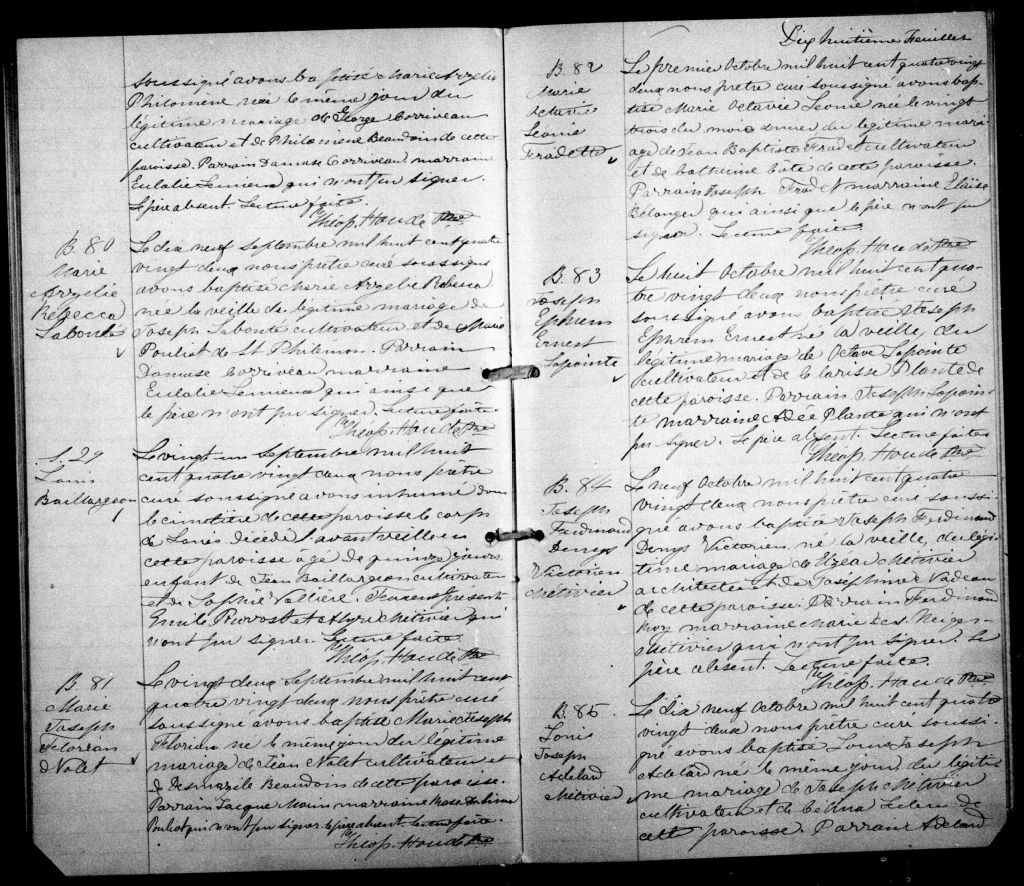 soussigné avons baptisé Marie Arzelie
Philomene née le même jour du
légitime mariage de George Corriveau
cultivateur et de Philomène Beaudoin de cette
paroisse. Parrain Damase Corriveau marraine
Eulalie Lemieux qui n'ont pu signer.
Le père absent. Lecture faite.
Théop. Houde Ptre
B. 80
Marie
Arzelie
Rebecca
Labonté
Le dix neuf Septembre mil huit cent quatre
vingt deux nous prêtre curé soussigné
avons baptisé Marie Arzelie Rebecca
née la veille du légitime mariage de
Joseph Labonté cultivateur et de Marie
Pouliot de St Philémon. Parrain
Damase Corriveau marraine
Eulalie Lemieux qui ainsi que
le père n'ont pu signer. Lecture faite
Théop. Houde Ptre
S. 29
Louis
Baillargeon
Le vingt un Septembre mil huit
cent quatre vingt deux nous prêtre
curé soussigné avons inhumé dans
le cimetière de cette paroisse le corps
de Louis décédé l'avant veille en
cette paroisse âgé de quinze jours
enfant de Jean Baillargeon cultivateur
et de Sophie Vallière. Furent présent
Emile Provost et Métivier qui
n'ont pu signer. Lecture faite.
Théop. Houde Ptre
B. 81
Marie
Joseph
Florian
Nolet
Le vingt deux Septembre mil huit cent
quatre vingt deux nous prêtre curé
soussigné avons baptisé Marie Joseph
Florian né le même jour du légitime
mariage de Jean Nolet cultivateur et
de Desmarile Beaudoin de cette paroisse.
Parrain Jacque Morin marraine Rose Delima
Pouliot qui n'ont pu signer le père absent. Lecture faite.
Théop. Houde Ptre
Dix huitième Feuillet
B. 82
Marie
Octavie
Leonie
Fradette
Le premier Octobre mil huit cent quatre vingt
deux nous prêtre curé soussigné avons bap-
tisé Marie Octavie Leonie née le vingt
trois du mois dernier du légitime mari-
age de Jean Baptiste Fradet cultivateur
et de Catherine Côté de cette paroisse.
Parrain Joseph Fradet marraine Eloïse
Bélanger qui ainsi que le père n'ont pu
signer. Lecture faite
Théop. Houde Ptre
B. 83
Joseph
Ephrem
Ernest
Lapointe
Le huit Octobre mil huit cent qua-
tre vingt deux nous prêtre curé
soussigné avons baptisé Joseph
Ephrem Ernest né la veille, du
légitime mariage de Octave Lapointe
cultivateur et de Clarisse Plante de
cette paroisse. Parrain Joseph Lapoin-
te marraine Adée Plante qui n'ont
pu signer. Le père absent. Lecture faite
Théop. Houde Ptre
B. 84
Joseph
Ferdinand
Denys
Victorien
Métivier
Le neuf Octobre mil huit cent quatre
vingt deux nous prêtre curé soussi-
gné avons baptisé Joseph Ferdinand
Denys Victorien, né la veille, du légi-
time mariage de Elzéar Métivier
architecte et de Josephine Nadeau
de cette paroisse. Parrain Ferdinand
Roy marraine Marie des Neiges
Métivier qui n'ont pu signer. Le
père absent. Lecture faite.
Théop. Houde Ptre
B. 85
Louis
Joseph
Adelard
Métivier
Le dix neuf Octobre mil huit cent quatre
vingt deux nous prêtre curé soussi-
gné avons baptisé Louis Joseph
Adelard né le même jour du légiti-
me mariage de Joseph Métivier
cultivateur et de Célina de
cette paroisse. Parrain Adelard